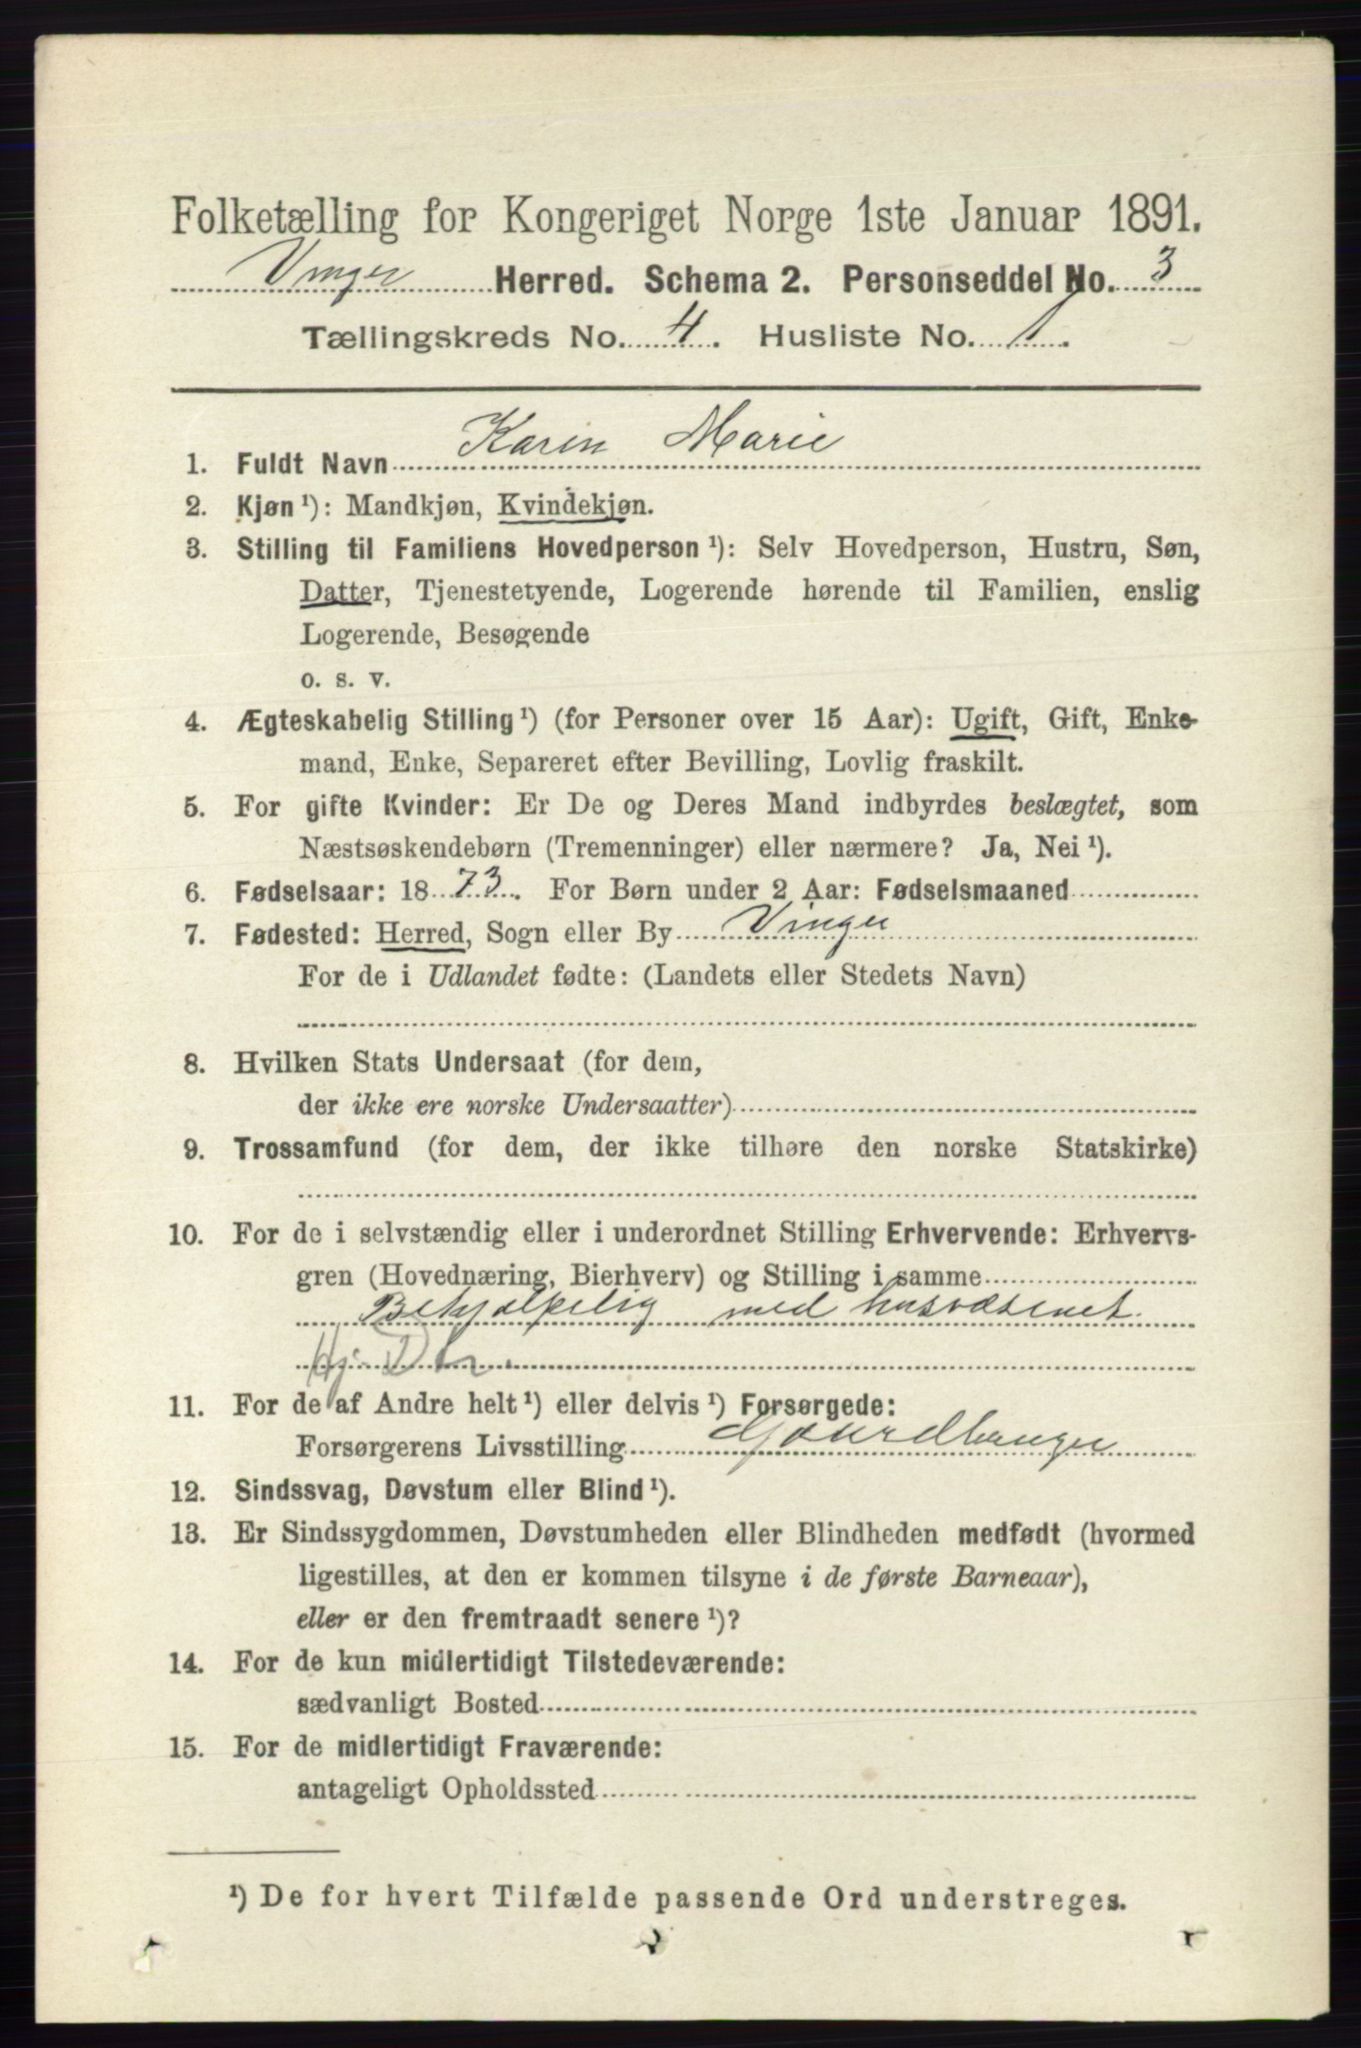 Folketælling for Kongeriget Norge 1ste Januar 1891.
Vinger Herred. Schema 2. Personseddel No. 3
Tællingskreds No. 4. Husliste No. 1.
1. Fuldt Navn Karen Marie
2. Kjøn ¹): Mandkjøn, Kvindekjøn.
3. Stilling til Familiens Hovedperson ¹): Selv Hovedperson, Hustru, Søn,
Datter, Tjenestetyende, Logerende hørende til Familien, enslig
Logerende, Besøgende
o. s. v.
4. Ægteskabelig Stilling ¹) (for Personer over 15 Aar): Ugift, Gift, Enke-
mand, Enke, Separeret efter Bevilling, Lovlig fraskilt.
5. For gifte Kvinder: Er De og Deres Mand indbyrdes beslægtet, som
Næstsøskendebørn (Tremenninger) eller nærmere? Ja, Nei ¹).
6. Fødselsaar: 1873. For Børn under 2 Aar: Fødselsmaaned
7. Fødested: Herred, Sogn eller By Vinger
For de i Udlandet fødte: (Landets eller Stedets Navn)
8. Hvilken Stats Undersaat (for dem,
der ikke ere norske Undersaatter)
9. Trossamfund (for dem, der ikke tilhøre den norske Statskirke)
10. For de i selvstændig eller i underordnet Stilling Erhvervende: Erhvervs-
gren (Hovednæring, Bierhverv) og Stilling i samme
Behjælpelig med husvæsenet.
11. For de af Andre helt ¹) eller delvis ¹) Forsørgede:
Forsørgerens Livsstilling Gaardbruger
12. Sindssvag, Døvstum eller Blind ¹).
13. Er Sindssygdommen, Døvstumheden eller Blindheden medfødt (hvormed
ligestilles, at den er kommen tilsyne i de første Barneaar),
eller er den fremtraadt senere ¹)?
14. For de kun midlertidigt Tilstedeværende:
sædvanligt Bosted
15. For de midlertidigt Fraværende:
antageligt Opholdssted
¹) De for hvert Tilfælde passende Ord understreges.